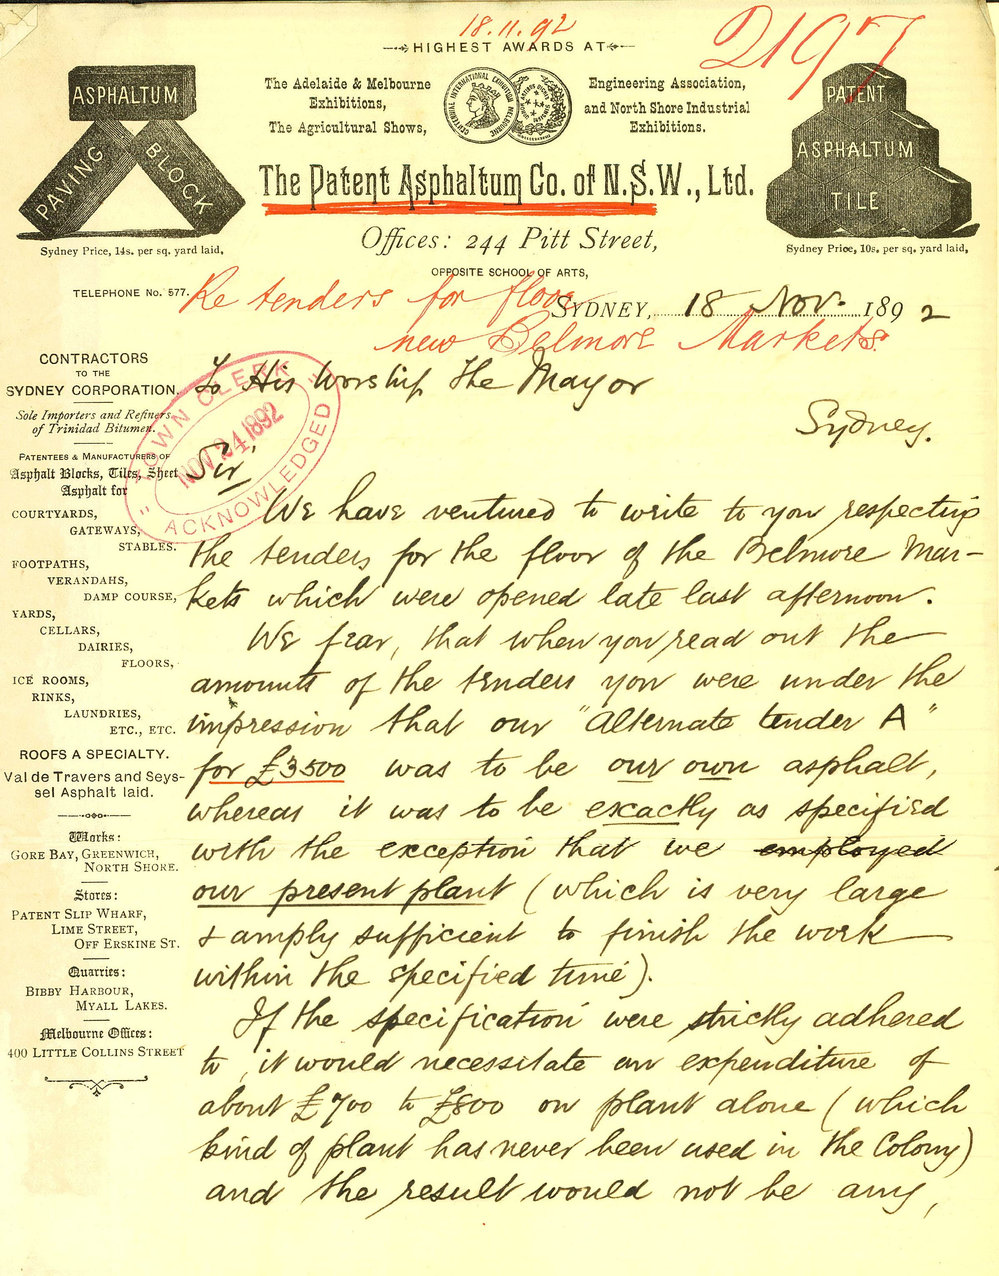 18.11.92
2197
HIGHEST AWARDS AT
The Adelaide & Melbourne
Exhibitions,
The Agricultural Shows,
CENTENNIAL INTERNATIONAL EXHIBITION MELBOURNE
Engineering Association,
and North Shore Industrial
Exhibitions.
ASPHALTUM
PAVING
BLOCK
Sydney Price, 14s. per sq. yard laid,
PATENT
ASPHALTUM
TILE
Sydney Price, 10s. per sq. yard laid,
The Patent Asphaltum Co. of N.S.W., Ltd.
Offices: 244 Pitt Street,
OPPOSITE SCHOOL OF ARTS,
TELEPHONE No. 577.
Re tenders for floor
new Belmore Markets.
SYDNEY, 18 Nov. 1892
CONTRACTORS
TO THE
SYDNEY CORPORATION.
Sole Importers and Refiners
of Trinidad Bitumen.
PATENTEES & MANUFACTURERS OF
Asphalt Blocks, Tiles, Sheet
Asphalt for
COURTYARDS,
GATEWAYS,
STABLES.
FOOTPATHS,
VERANDAHS,
DAMP COURSE,
YARDS,
CELLARS,
DAIRIES,
FLOORS,
ICE ROOMS,
RINKS,
LAUNDRIES,
ETC., ETC.
ROOFS A SPECIALTY.
Val de Travers and Seys-
sel Asphalt laid.
Works:
GORE BAY, GREENWICH,
NORTH SHORE.
Stores:
PATENT SLIP WHARF,
LIME STREET,
OFF ERSKINE ST.
Quarries:
BIBBY HARBOUR,
MYALL LAKES.
Melbourne Offices:
400 LITTLE COLLINS STREET
TOWN CLERK
NOV 24 1892
ACKNOWLEDGED
To His Worship the Mayor
Sydney.
Sir
We have ventured to write to you respecting
the tenders for the floor of the Belmore Mar-
kets which were opened late last afternoon.
We fear, that when you read out the
amounts of the tenders you were under the
impression that our "Alternate tender A"
for £3500 was to be our own asphalt,
whereas it was to be exactly as specified
with the exception that we employed
our present plant (which is very large
& amply sufficient to finish the work
within the specified time).
If the specification were strictly adhered
to, it would necessitate an expenditure of
about £700 to £800 on plant alone (which
kind of plant has never been used in the Colony)
and the result would not be any,